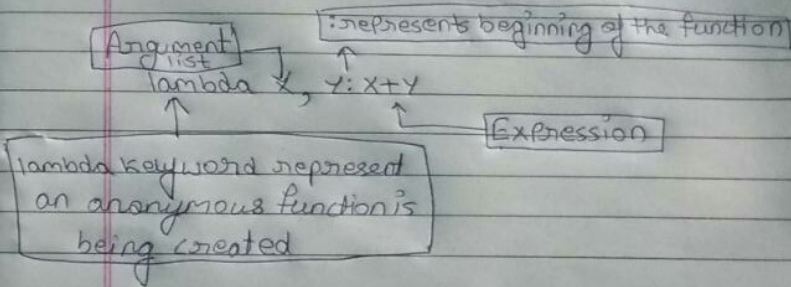 :represents beginning of the function
Argument
list
lambda X, Y: X+Y
Expression
lambda keyword represent
an anonymous function is
being created